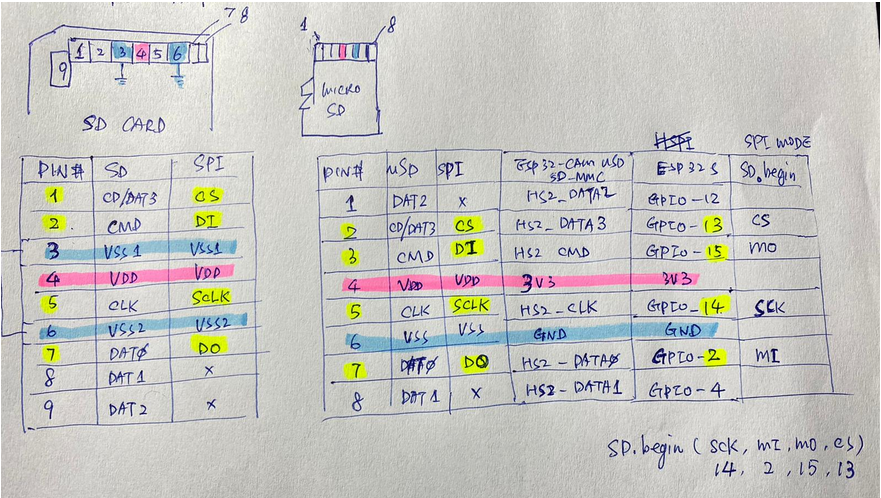 7 8
1 2 3 4 5 6
9
SD CARD
1 8
MICRO
SD
PIN# SD SPI
1 CD/DAT3 CS
2. CMD DI
3 VSS1 VSS1
4 VDD VDD
5 CLK SCLK
6 VSS2 VSS2
7 DATØ DO
8 DAT1 x
9 DAT2 x
HSPI SPI MODE
PIN# uSD SPI ESP32-CAM USD SD-MMC ESP32S SD.begin
1 DAT2 x HS2_DATA2 GPIO-12
2 CD/DAT3 CS HS2_DATA3 GPIO-13 CS
3 CMD DI HS2 CMD GPIO-15 MO
4 VDD VDD 3V3 3V3
5 CLK SCLK HS2-CLK GPIO-14 SCK
6 VSS VSS GND GND
7 DATØ DO HS2-DATAØ GPIO-2 MI
8 DAT1 x HS2-DATA1 GPIO-4
SD.begin (SCK, MI, MO, CS)
14, 2, 15, 13